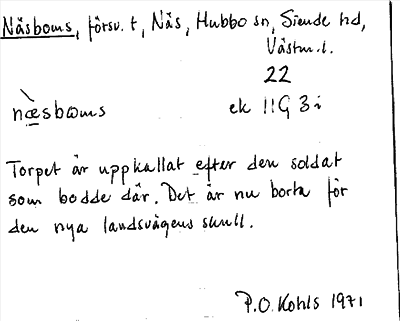 Näsboms, försv. t, Näs, Hubbo sn, Siende hd,
Västm. l.
22
næ̀sbωms ek 11G 3 i
Torpet är uppkallat efter den soldat
som bodde där. Det är nu borta för
den nya landsvägens skull.
P.O. Kohls 1971